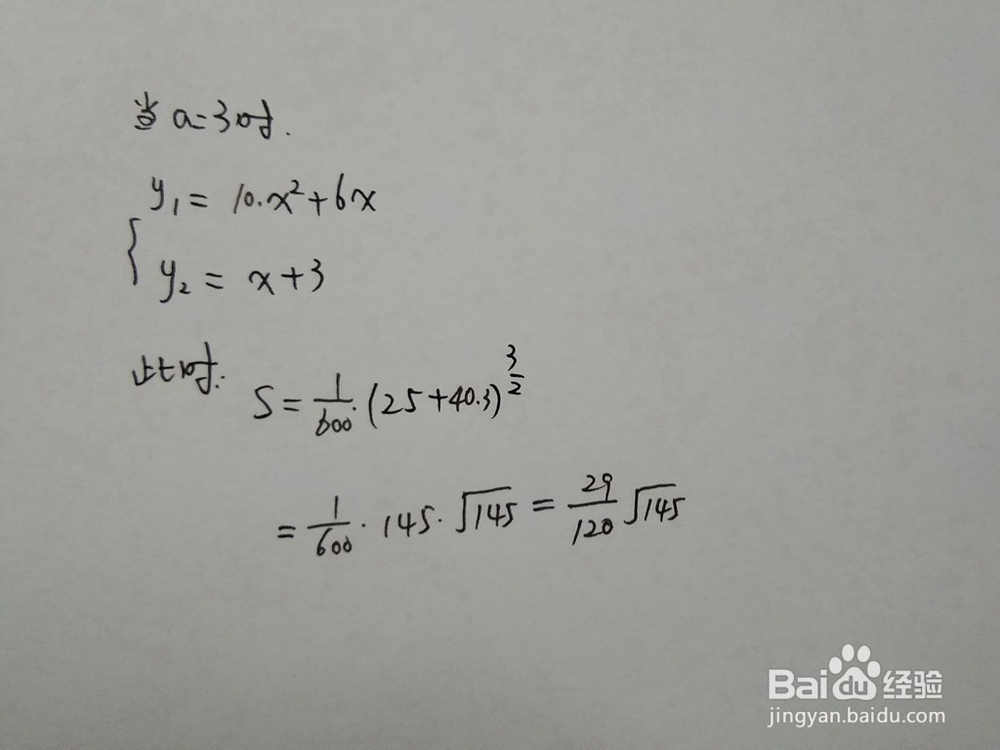 当a=3时.
y₁= 10.x²+6x
{
y₂= x+3
此时:
S=1/600.(25+40.3)^(3/2)
=1/600·145·√145=29/120√145
Baidu经验
jingyan.baidu.com